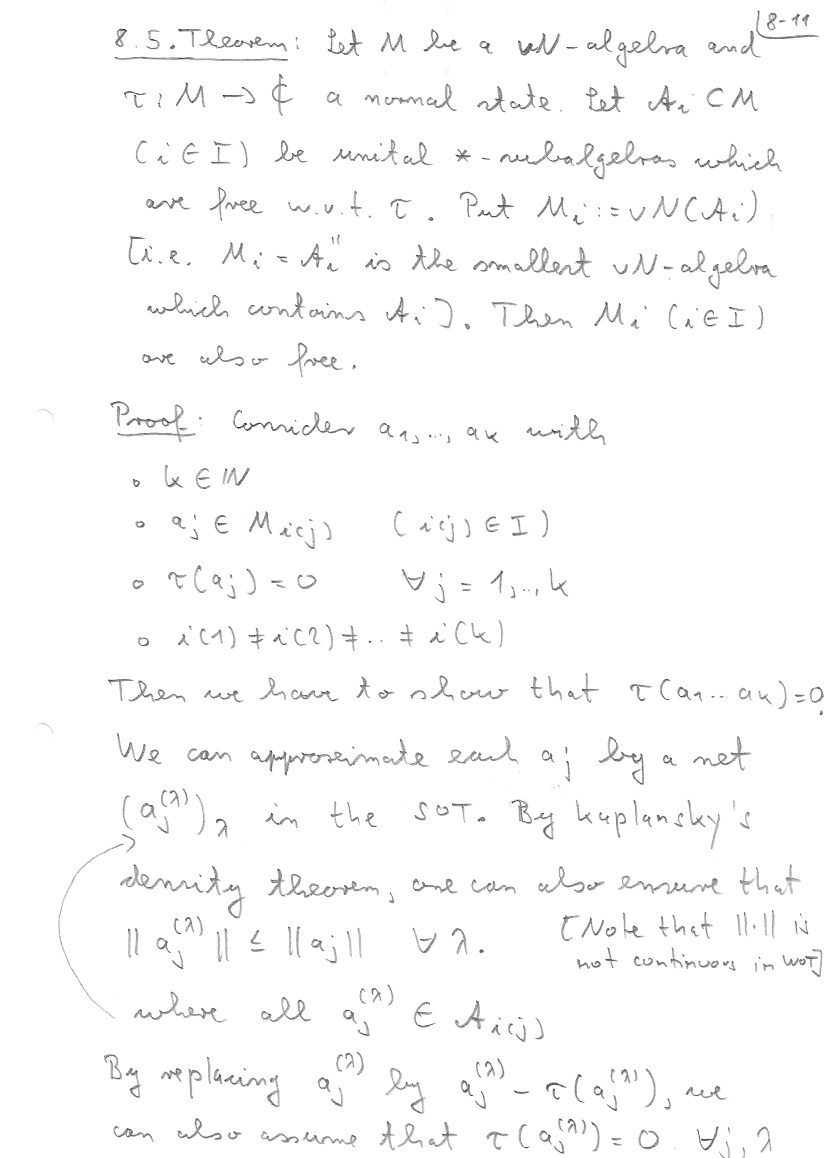 8-11
8.5. Theorem: Let M be a vN-algebra and
τ: M → ℂ a normal state. Let Aᵢ ⊂ M
(i ∈ I) be unital *-subalgebras which
are free w.r.t. τ. Put Mᵢ := vN(Aᵢ)
[i.e. Mᵢ = Aᵢ'' is the smallest vN-algebra
which contains Aᵢ]. Then Mᵢ (i ∈ I)
are also free.
Proof: Consider a₁,..., aₖ with
∘ k ∈ ℕ
∘ aⱼ ∈ M_{i(j)} (i(j) ∈ I)
∘ τ(aⱼ) = 0 ∀ j = 1,..,k
∘ i(1) ≠ i(2) ≠ .. ≠ i(k)
Then we have to show that τ(a₁...aₖ)=0.
We can approximate each aⱼ by a net
(aⱼ^{(λ)})_λ in the SOT. By Kaplansky's
density theorem, one can also ensure that
‖aⱼ^{(λ)}‖ ≤ ‖aⱼ‖ ∀ λ. [Note that ‖·‖ is
not continuous in WOT]
where all aⱼ^{(λ)} ∈ A_{i(j)}
By replacing aⱼ^{(λ)} by aⱼ^{(λ)} - τ(aⱼ^{(λ)}), we
can also assume that τ(aⱼ^{(λ)}) = 0 ∀j, λ